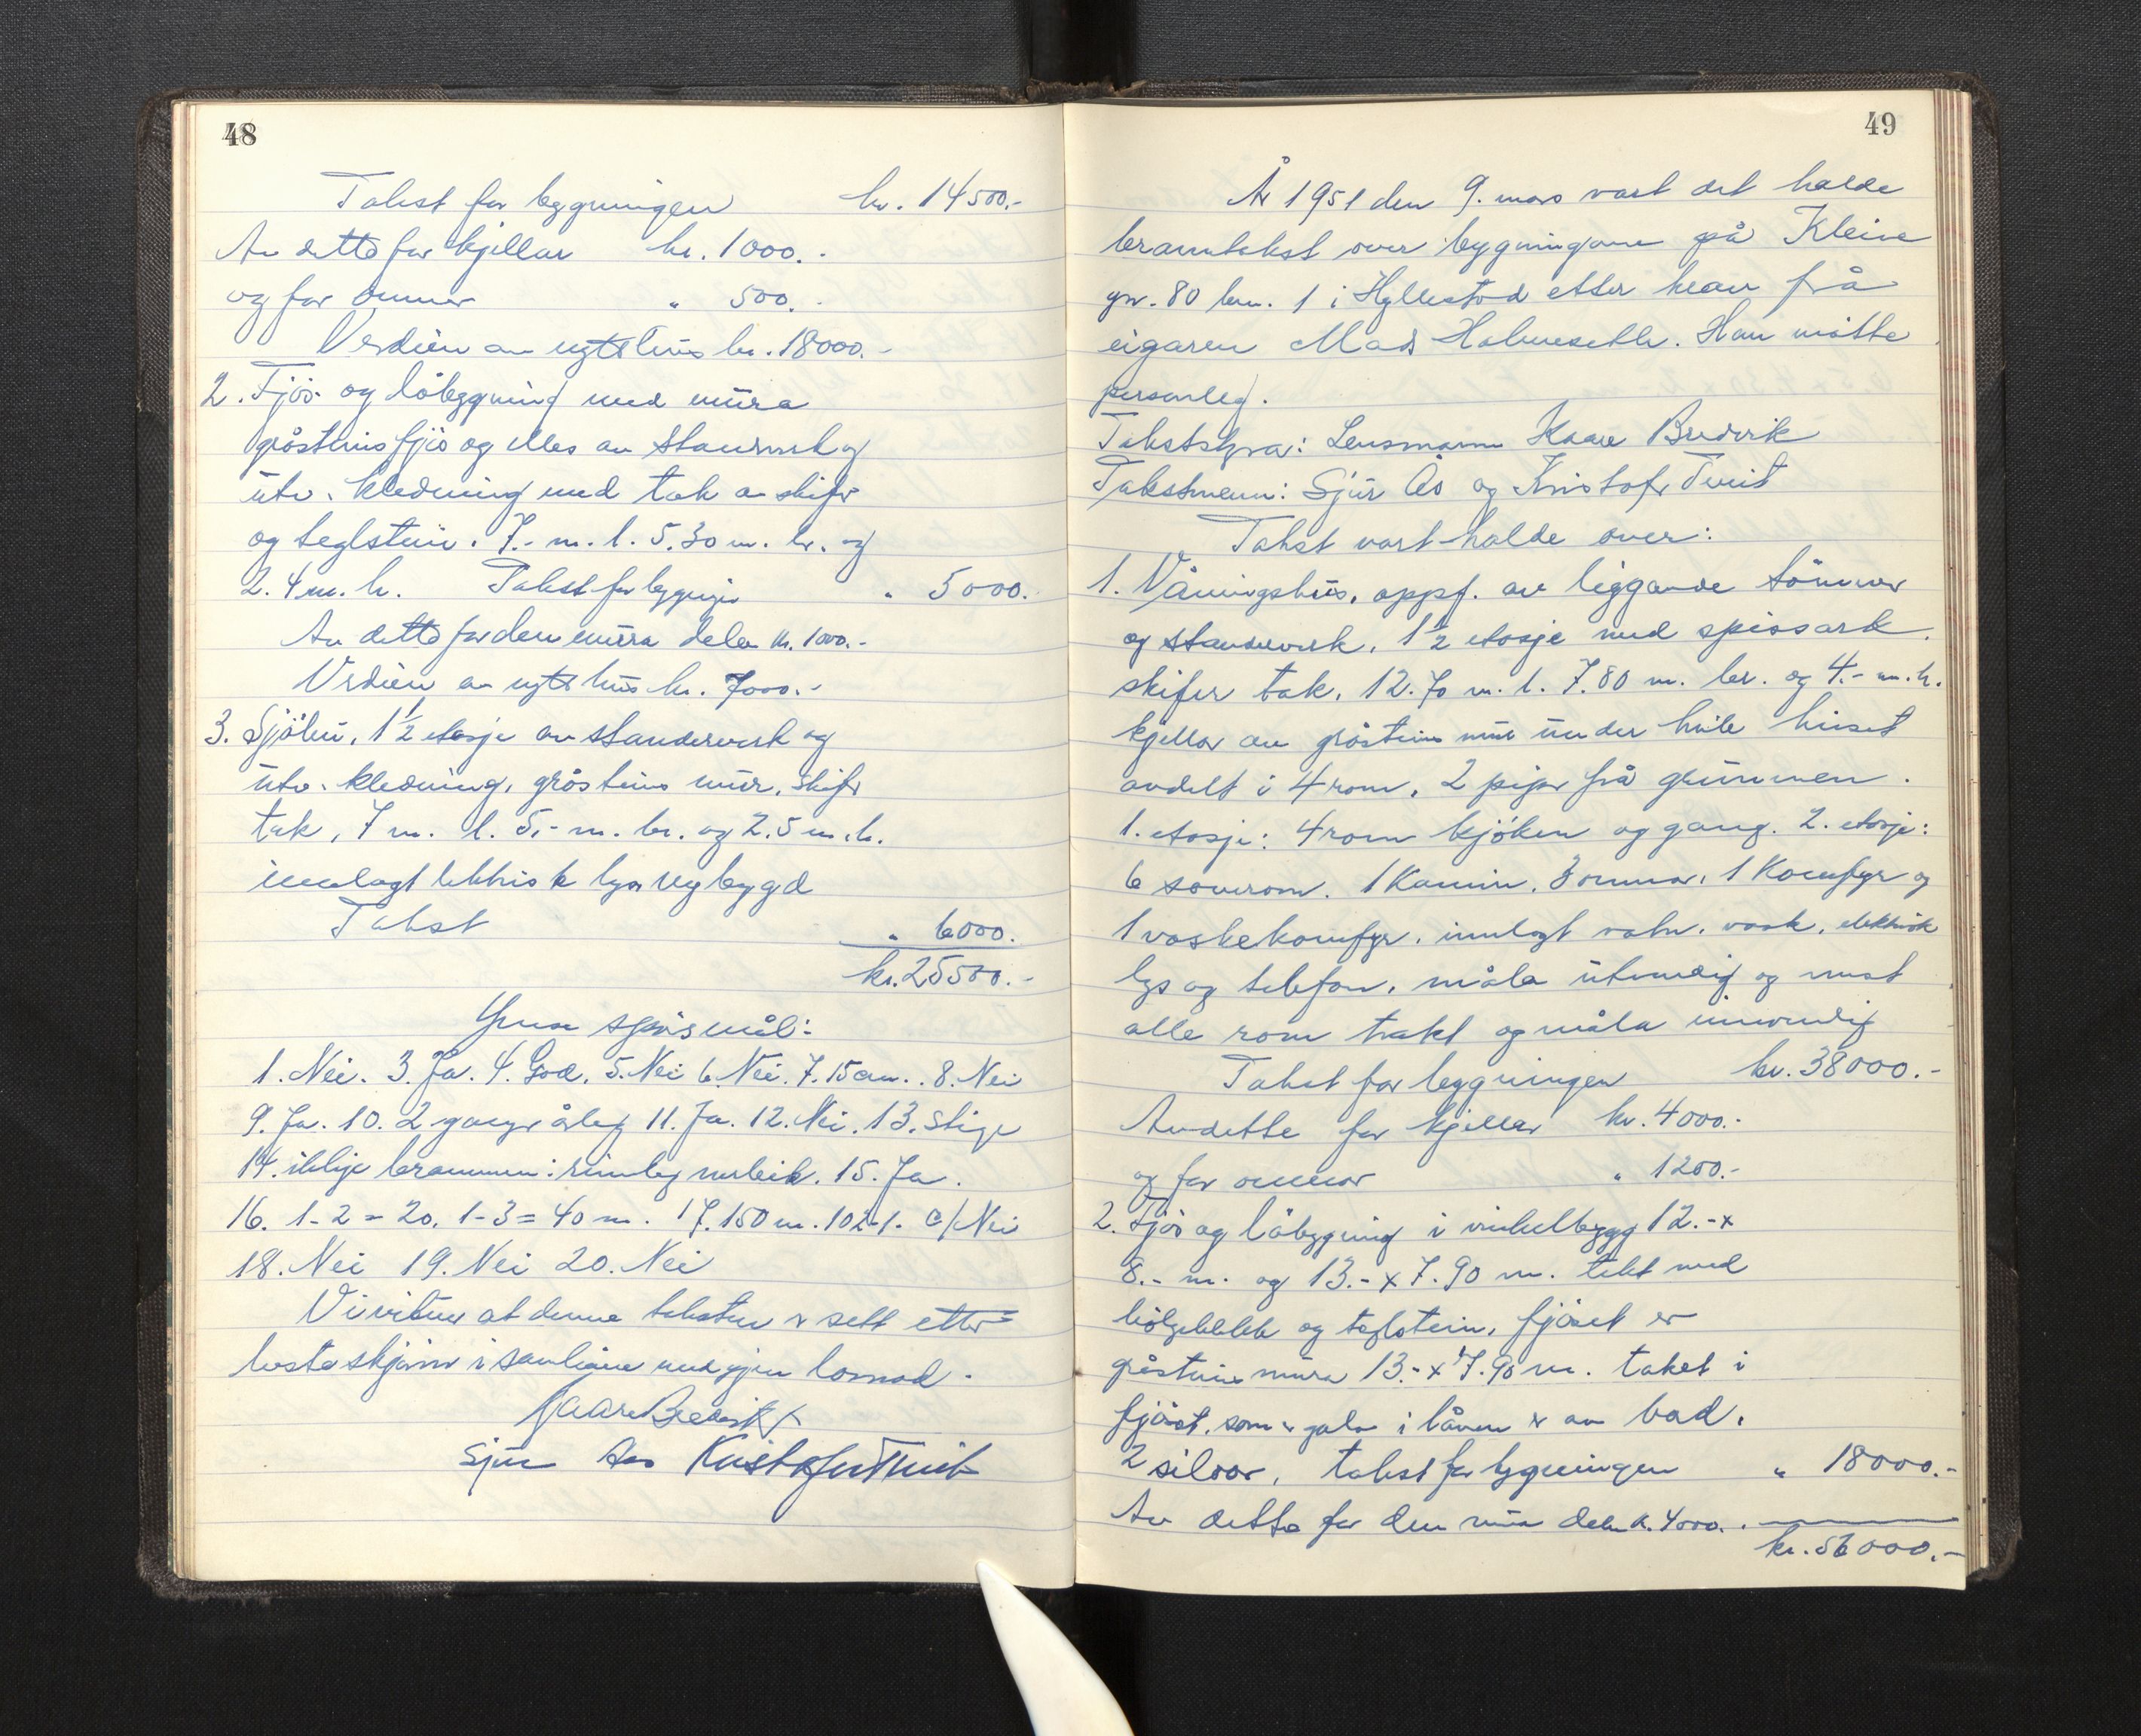 48
Takst for bygningen kr. 14500.-
Av detta for kjellar kr. 1000.-
og for omnar " 500.-
Verdien av nytt hus kr. 18000.-
2. Fjøs- og løbygning med mura
gråsteinsfjøs og elles av standverk og
utv. kledning med tak av skifer
og teglstein. 7.- m. l. 5.30 m. br. og
2.4 m. h. Takst for bygningen " 5000.-
Av detta for den mura delen kr. 1000.-
Verdien av nytt hus kr. 7000.-
3. Sjøbu, 1 1/2 etasje av standerverk og
utv. kledning, gråsteins mur, skifer
tak, 7 m. l. 5.- m. br. og 2.5 m. h.
innlagt elektrisk lys nybygd
Takst " 6000.
kr. 25500.-
Ymse spørsmål:
1. Nei. 3. Ja. 4. God. 5. Nei 6. Nei. 7. 15 cm. 8. Nei
9. Ja. 10. 2 gonger årleg 11. Ja. 12. Nei. 13. Stige
14. ikkje brannmur: rimeleg 15. Ja.
16. 1-2 = 20, 1-3 = 40 m. 17. 150 m. c/ Nei
18. Nei 19. Nei 20. Nei
Vi vitnar at denne taksten er sett etter
beste skjønn i samhøve med gjeven lovnad.
Kaare Bredvik
Sjur Aas Kristofer Tveit
49
År 1951 den 9. mars vart det halde
branntakst over bygningane på Kleiva
gnr. 80 bnr. 1 i Hyllestad etter krav frå
eigaren Mads Holmeseth. Han møtte
personleg.
Takststyrar: Lensmann Kaare Bredvik
Takstmenn: Sjur Ås og Kristofer Tveit
Takst vart halde over:
1. Våningshus, oppf. av liggande tømmer
og standerverk, 1 1/2 etasje med spissark.
skifer tak, 12.70 m. l. 7.80 m. br. og 4.- m. h.
kjellar av gråsteins mur under heile huset
avdelt i 4 rom, 2 piper frå grunnen.
1. etasje: 4 rom kjøken og gang. 2. etasje:
6 soverom. 1 Kamin, 3 omnar, 1 Komfyr og
1 vaskekomfyr, innlagt vatn, vask, elektrisk
lys og telefon, måla utvendig og mest
alle rom trekt og måla innvendig
Takst for bygningen kr. 38000.-
Av dette for kjellar kr. 4000.-
og for omnar " 1200.-
2. Fjøs og løbygning i vinkelbygg 12.- x
8.- m. og 13.- x 7.90 m. tekt med
bølgeblekk og teglstein, fjøset er
gråsteins mura 13.- x 7.90 m. taket i
fjøset, som er golv i låven er av bord.
2 siloar, takst for bygningen " 18000.-
Av detta for den mura delen kr. 4000.-
kr. 56000.-